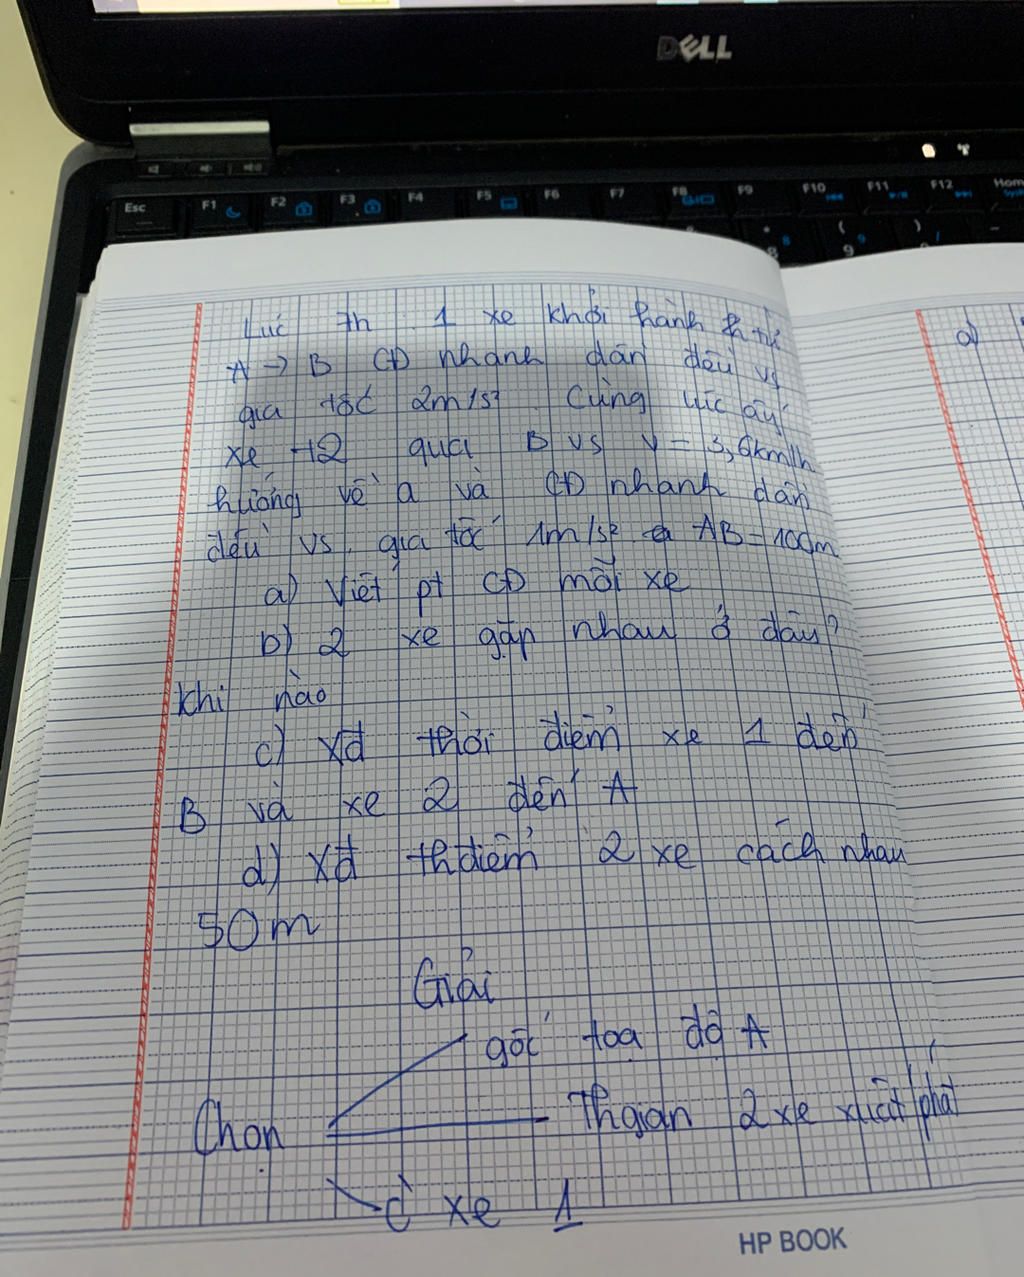 DELL
Esc F1 F2 F3 F4 F5 F6 F7 F8 F9 F10 F11 F12 Hom
Lúc 7h 1 xe khởi hành
A → B CĐ nhanh dần đều vs
gia tốc 2m/s² Cùng lúc ấy
xe t2 qua B vs v = 3,6km/h
hướng về a và CĐ nhanh dần
đều vs gia tốc 1m/s² AB = 100m
a) Viết pt CĐ mỗi xe
b) 2 xe gặp nhau ở đâu?
khi nào
c) Xđ thời điểm xe 1 đến
B và xe 2 đến A
d) Xđ thđiểm 2 xe cách nhau
50m
Giải
gốc toạ độ A
Chọn Thgian 2 xe xuất phát
xe 1
a)
HP BOOK